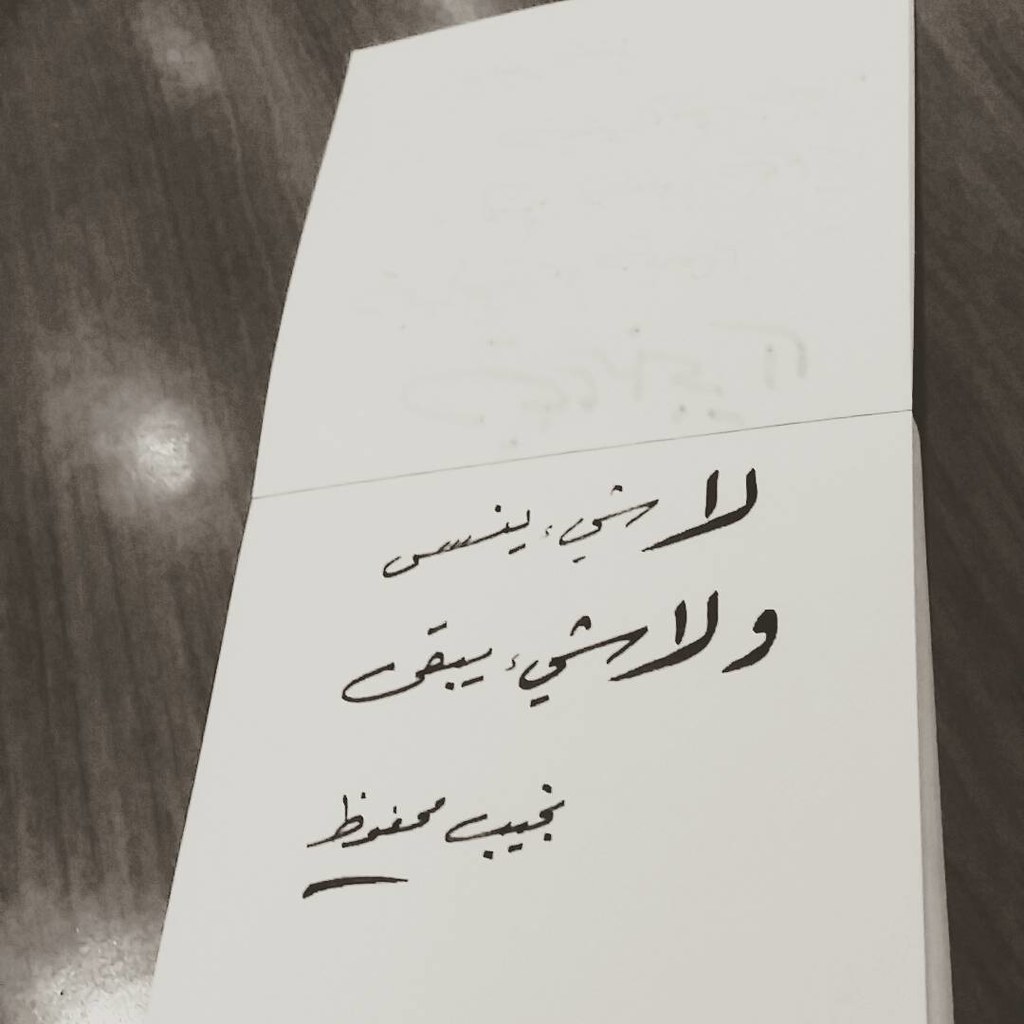 لا شيء ينسى
ولا شيء يبقى
نجيب محفوظ